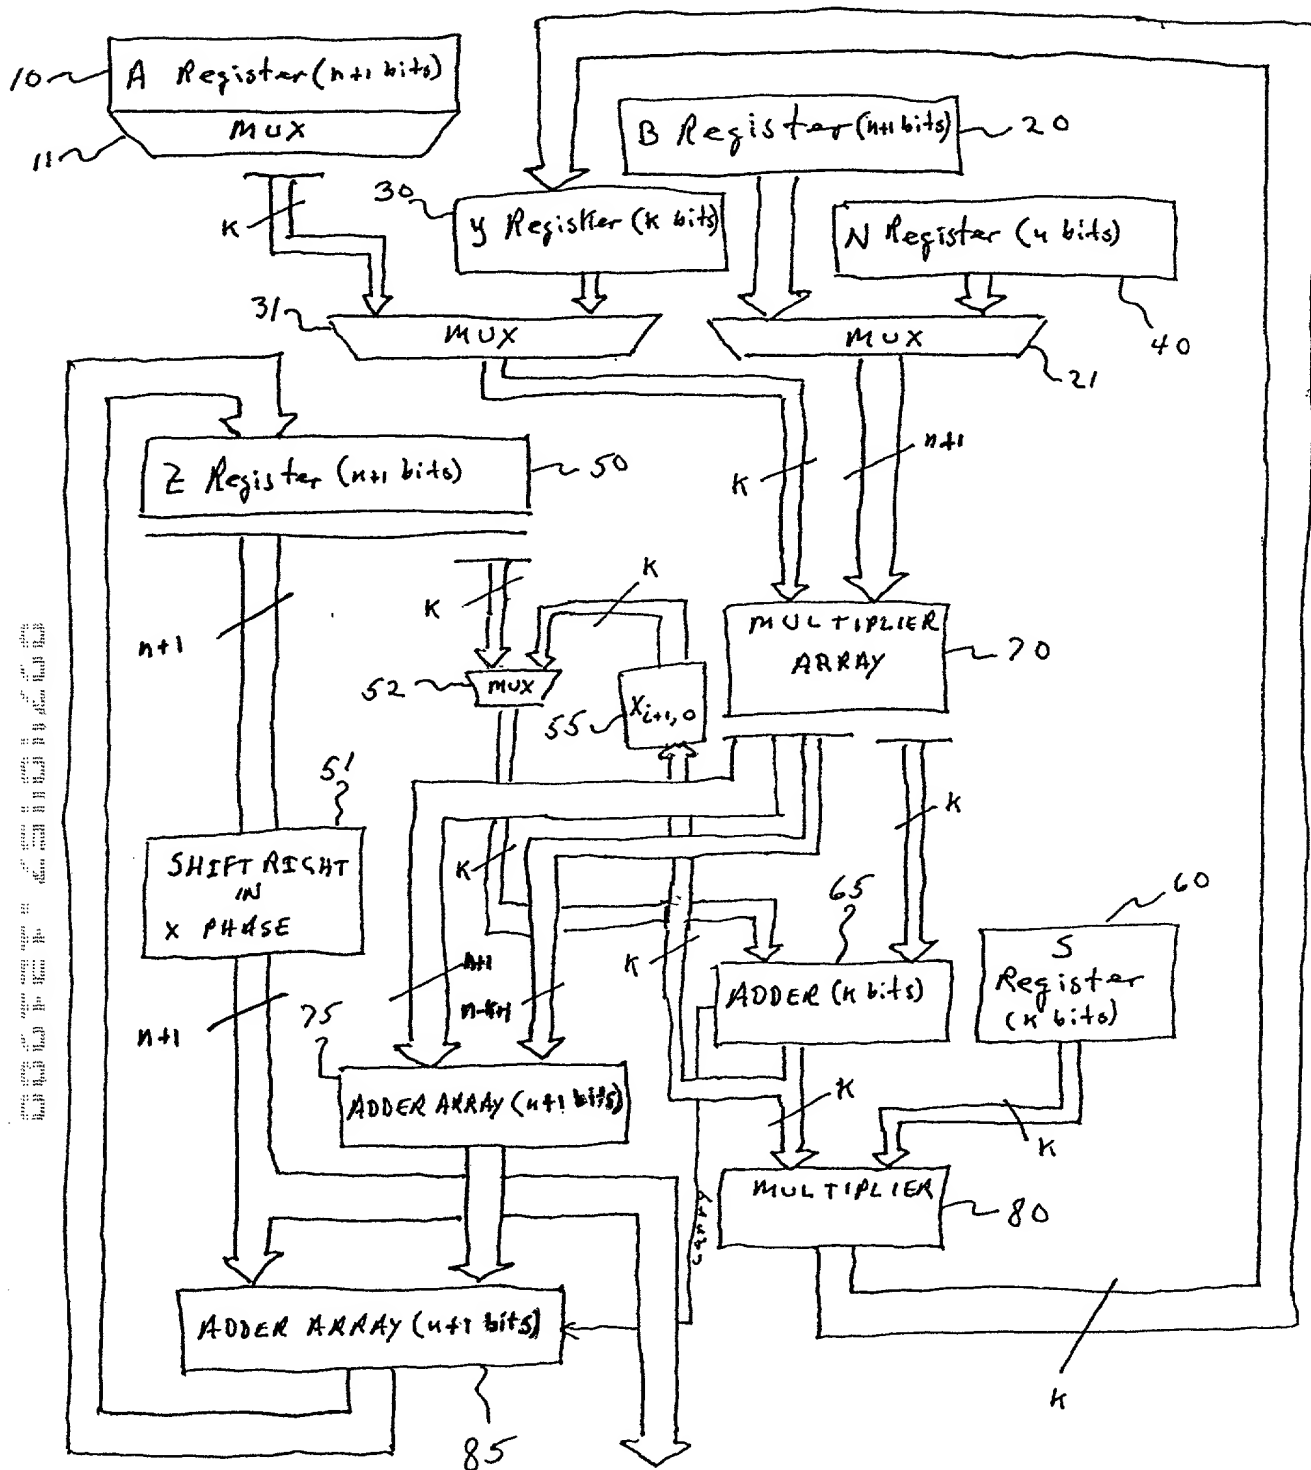 10
A Register (n+1 bits)
MUX
11
K
B Register (n+1 bits)
20
30
Y Register (k bits)
N Register (n bits)
40
31
MUX
MUX
21
Z Register (n+1 bits)
50
K
n+1
n+1
K
K
52
MUX
55
X i+1,0
MULTIPLIER
ARRAY
70
51
SHIFT RIGHT
IN
X PHASE
K
K
65
60
ADDER (k bits)
S
Register
(k bits)
n+1
n+1
n-k+1
K
75
ADDER ARRAY (n+1 bits)
K
K
MULTIPLIER
80
carry
ADDER ARRAY (n+1 bits)
85
K